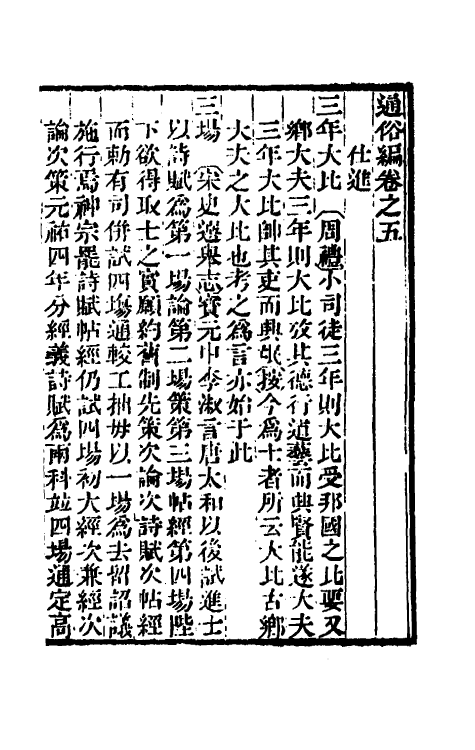 通俗編卷之五
仕進
三年大比〔周禮〕小司徒三年則大比受邦國之比要又
鄉大夫三年則大比攷其德行道藝而興賢能遂大夫
三年大比帥其吏而興甿〔按〕今為士者所云大比古鄉
大夫之大比也考之為言亦始于此
三場〔宋史選舉志〕寶元中李淑言唐太和以後試進士
以詩賦為第一場論第二場策第三場帖經第四場陛
下欲得取士之實願約舊制先策次論次詩賦次帖經
而勅有司併試四場通較工拙毋以一場為去留詔議
施行焉神宗罷詩賦帖經仍試四場初大經次兼經次
論次策元祐四年分經義詩賦為兩科竝四場通定高